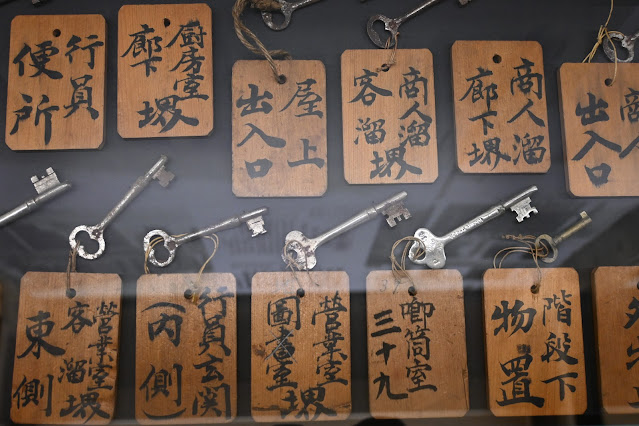 行員
便所
厨房室
廊下堺
屋上
出入口
商人溜
客溜堺
商人溜
廊下堺
商人
出入口
營業室
客溜堺
東側
行員玄関
(丙側)
營業室
圖書室堺
喞筒室
三十九
階段下
物置